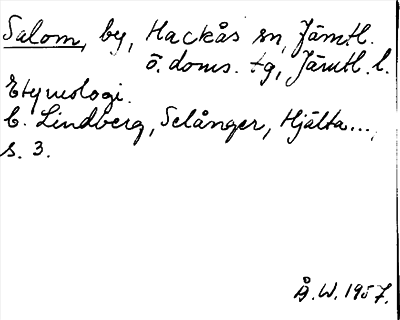 Salom, by, Hackås sn, Jämtl.
ö. doms. tg, Jämtl. l.
Etymologi.
C. Lindberg, Selånger, Hjälta...,
s. 3.
Å.W. 1957.